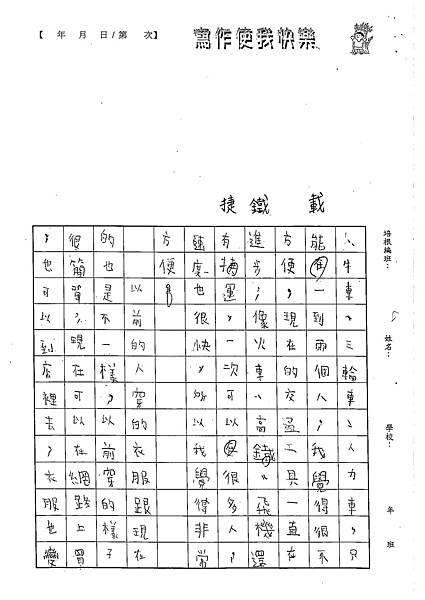 【 年 月 日/第 次】
寫作使我快樂
捷 鐵 載
培根編班：
姓名：
學校：
年 班
、牛車、三輪車、人力車只
能一到兩個人，我覺得很不
方便，現在的交通工具一直在
進步，像火車、高鐵、飛機還
有捕運，一次可以很多人，
速度也很快，所以我覺得非常
方便。
以前的人穿的衣服跟現在
的也是不一樣，以前穿的樣子
很簡單，現在可以在網路上買
，也可以到店裡去，衣服也變